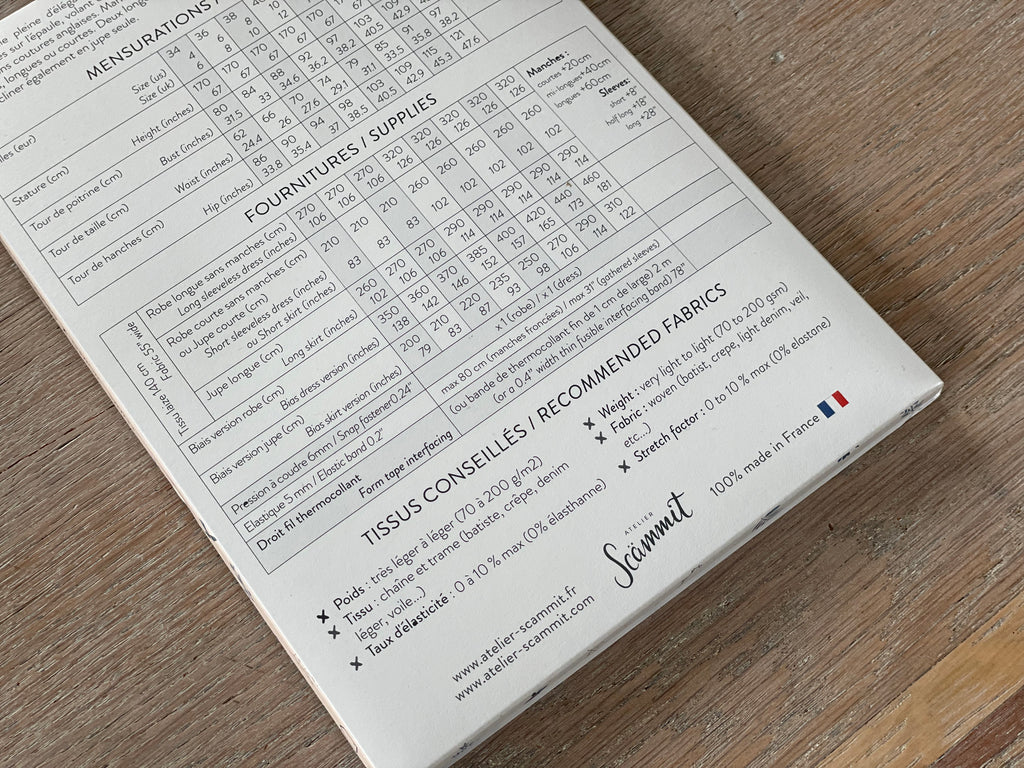 pleine d'élég
s sur l'épaule, volant
s coutures anglaises. Man
longues ou courtes. Deux long
cliner également en jupe seule.
MENSURATIONS /
les (eur) 34 36 38
Size (us) 4 6 8 10
Size (uk) 6 8 10 12
Stature (cm) 170 170 170 170 170
Height (inches) 67 67 67 67 67
Tour de poitrine (cm) 80 84 88 92 97 103 109
Bust (inches) 31.5 33 34.6 36.2 38.2 40.5 42.9
Tour de taille (cm) 62 66 70 74 79 85 91 97
Waist (inches) 24.4 26 27.6 29.1 31.1 33.5 35.8 38.2
Tour de hanches (cm) 86 90 94 98 103 109 115 121
Hip (inches) 33.8 35.4 37 38.5 40.5 42.9 45.3 47.6
FOURNITURES / SUPPLIES
Manches :
courtes +20cm
mi-longues +40cm
longues +60cm
Sleeves:
short +8"
half long +18"
long +28"
Tissu laize 140 cm
Fabric 55" wide
Robe longue sans manches (cm) 270 270 270 320 320 320 320 320
Long sleeveless dress (inches) 106 106 106 126 126 126 126 126
Robe courte sans manches (cm)
ou Jupe courte (cm) 210 210 210 260 260 260 260 260
Short sleeveless dress (inches)
ou Short skirt (inches) 83 83 83 102 102 102 102 102
Jupe longue (cm) 260 270 270 290 290 290 290 290
Long skirt (inches) 102 106 106 114 114 114 114 114
Biais version robe (cm) 350 360 370 385 400 420 440 460
Bias dress version (inches) 138 142 146 152 157 165 173 181
Biais version jupe (cm) 200 210 220 235 250 270 290 310
Bias skirt version (inches) 79 83 87 93 98 106 114 122
Pression à coudre 6mm / Snap fastener0.24" x 1 (robe) / x 1 (dress)
Elastique 5 mm / Elastic band 0.2" max 80 cm (manches froncées) / max 31" (gathered sleeves)
Droit fil thermocollant (ou bande de thermocollant fin de 1 cm de large) 2 m
Form tape interfacing (or a 0.4" width thin fusible interfacing band) 78"
TISSUS CONSEILLÉS / RECOMMENDED FABRICS
Poids : très léger à léger (70 à 200 g/m2)
Tissu : chaîne et trame (batiste, crêpe, denim
léger, voile...)
Taux d'élasticité : 0 à 10 % max (0% élasthanne)
Weight : very light to light (70 to 200 gsm)
Fabric : woven (batist, crepe, light denim, veil,
etc..)
Stretch factor : 0 to 10 % max (0% elastone)
www.atelier-scammit.fr
www.atelier-scammit.com
ATELIER
Scammit
100% made in France